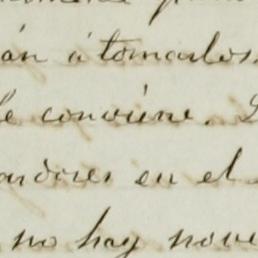 án á tomarlos
le conviene.
adores en el
no hay nove